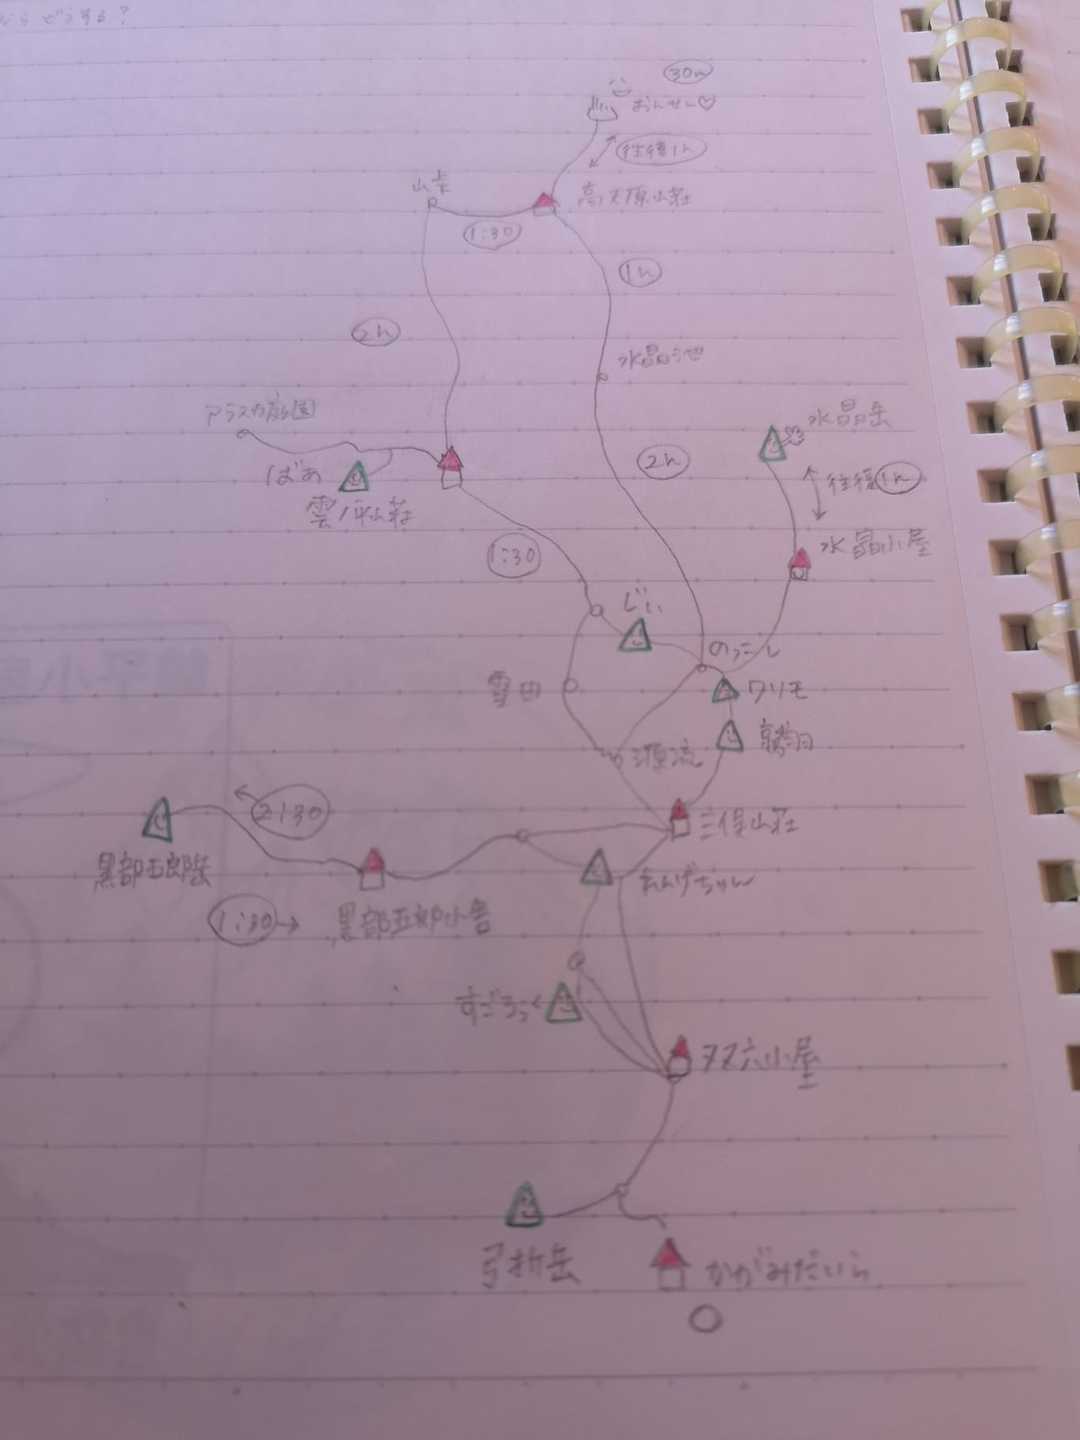 どうする?
30m
おんせん♡
往復1h
山と
高天原山荘
1:30
1h
2h
水晶池
アラスカ庭園
水晶岳
ばあ
2h
往復1h
雲ノ平山荘
1:30
水晶小屋
じい
のっこし
雪田
ワリモ
鷲羽
源流
三俣山荘
2:30
黒部五郎岳
れんげちゃん
1:30→
黒部五郎小舎
すごろく
双六小屋
弓折岳
かがみだいら